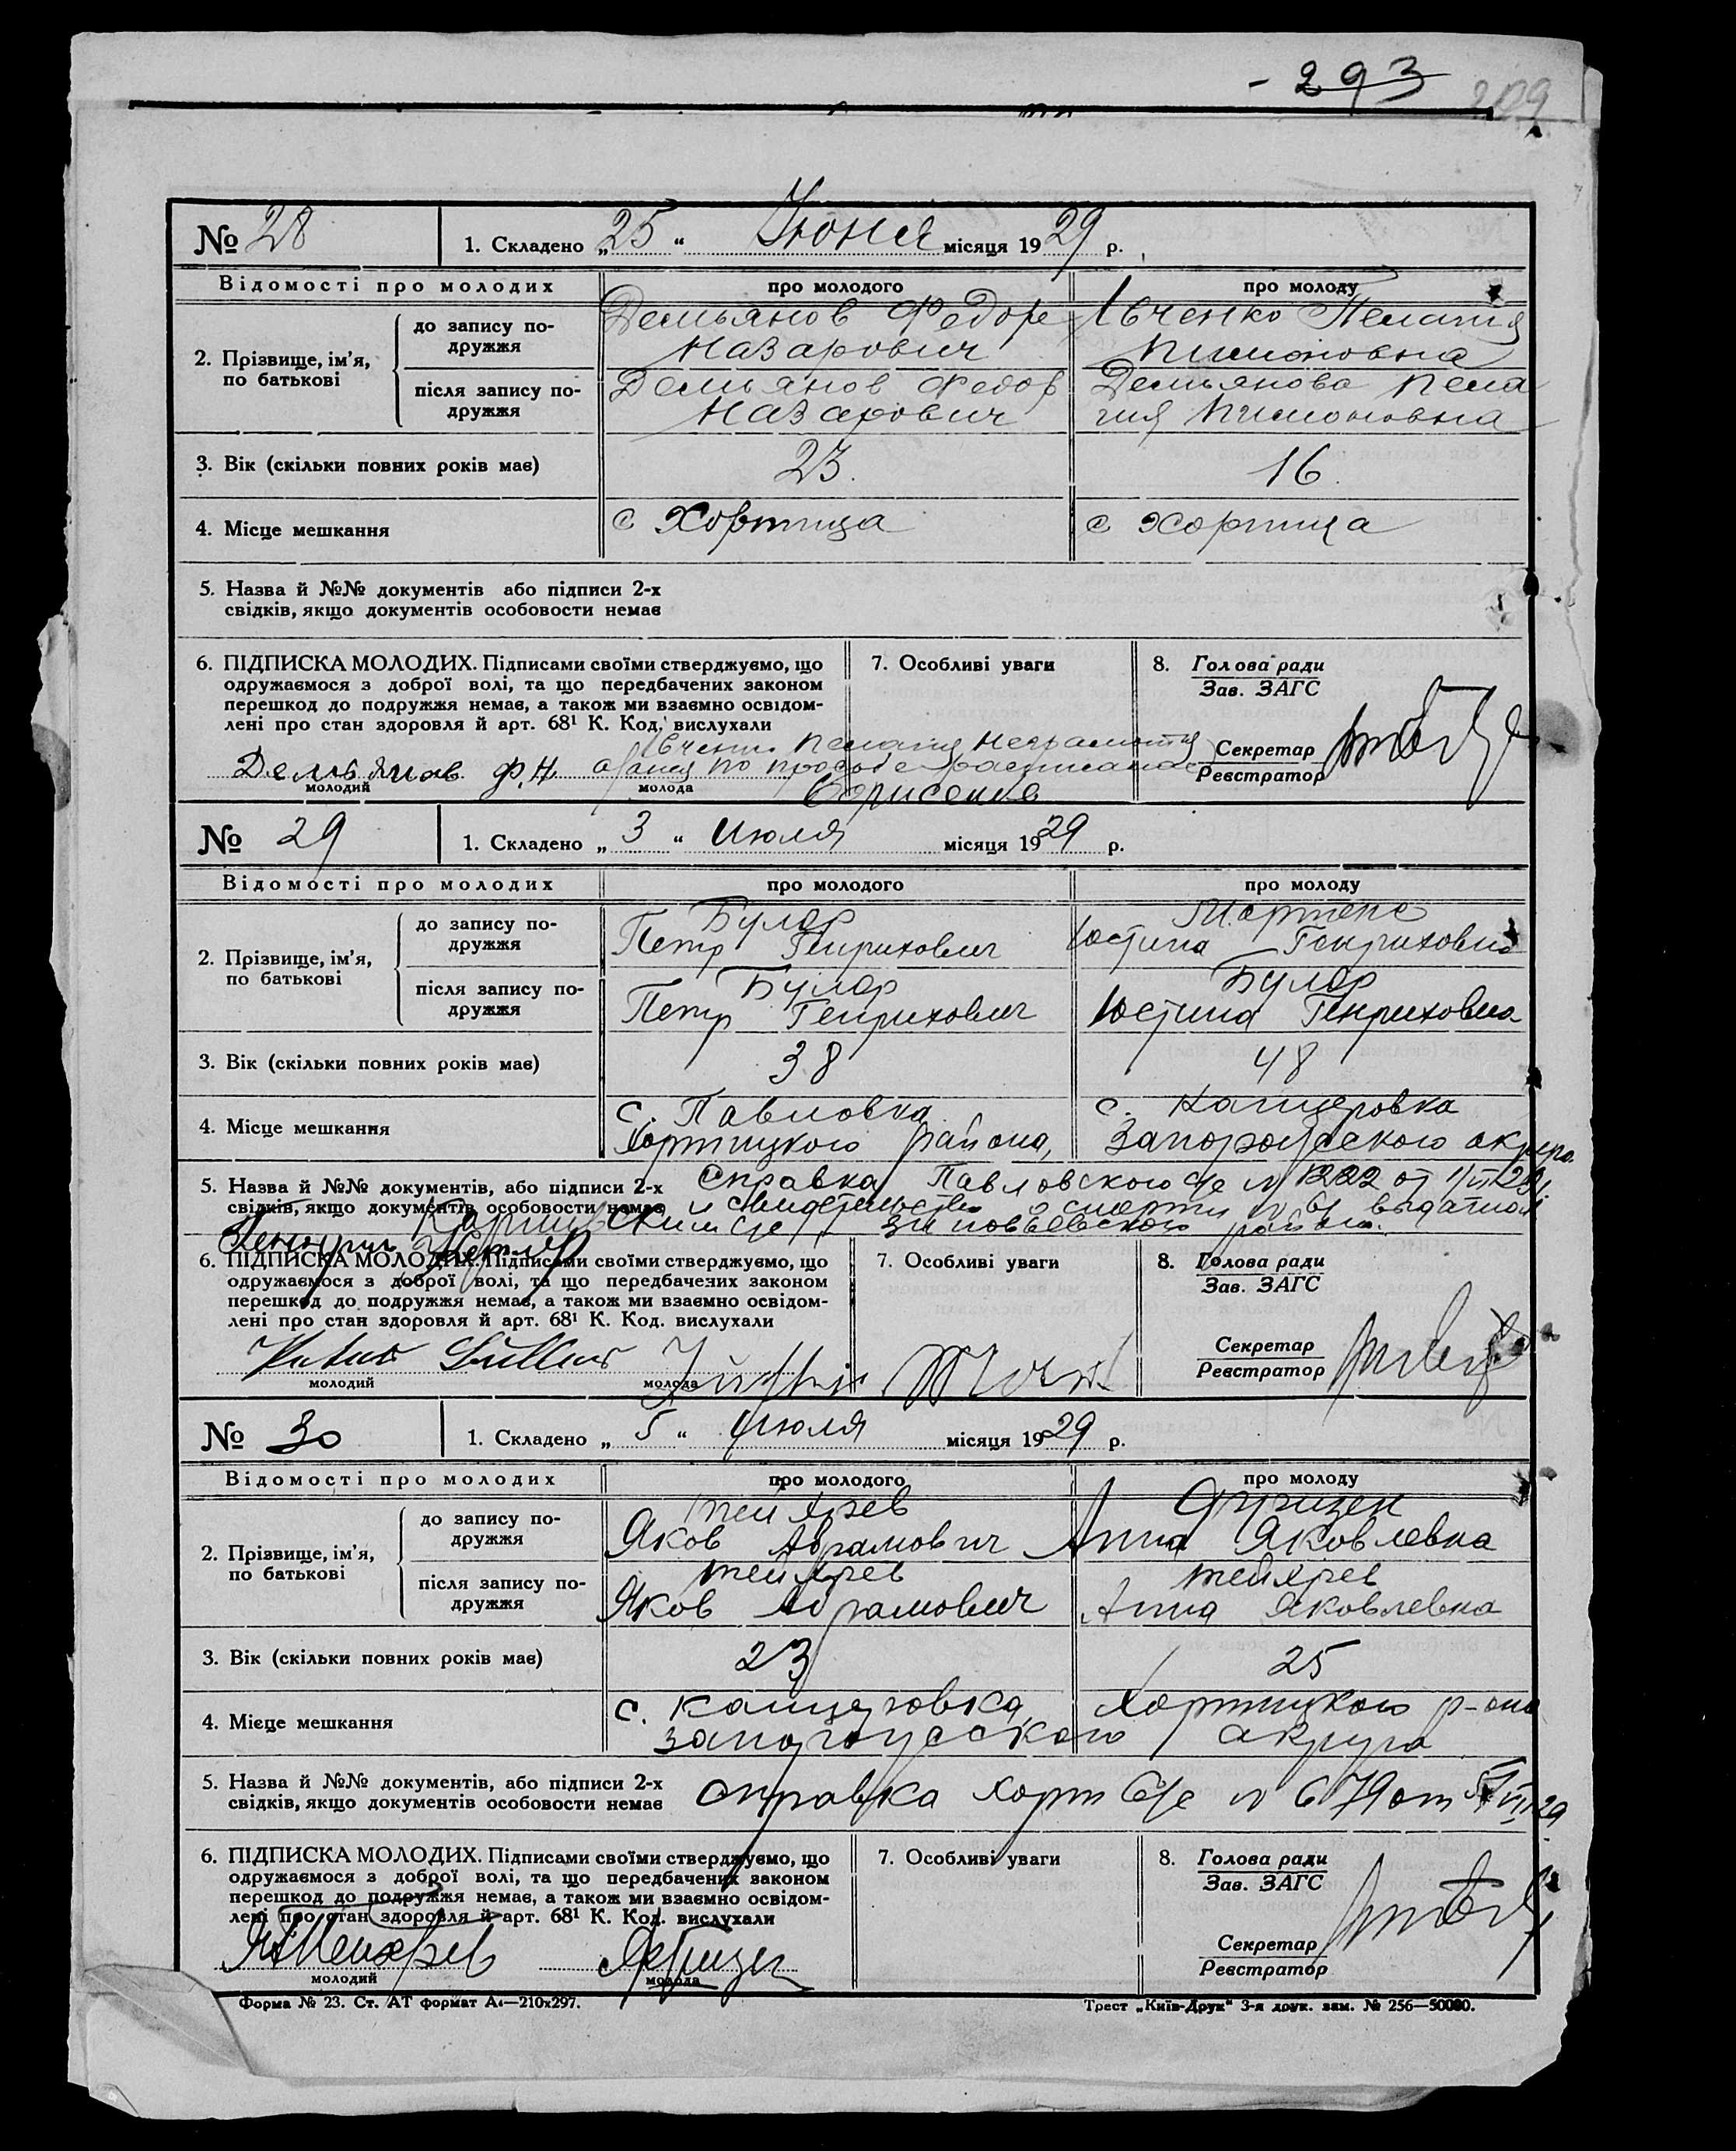 - 293
209
№ 28 1. Складено „ 25 “ Июня місяця 1929 р.
Відомості про молодих про молодого про молоду
2. Прізвище, ім’я, по батькові
до запису по-дружжя Демьянов Федор Ивченко Пелагия
Назарович Пимоновна
після запису по-дружжя Демьянов Федор Демьянова Пела
Назарович гия Пимоновна
3. Вік (скільки повних років має) 23. 16.
4. Місце мешкання с Хортица с Хортица
5. Назва й №№ документів або підписи 2-х
свідків, якщо документів особовости немає
6. ПІДПИСКА МОЛОДИХ. Підписами своїми стверджуємо, що 7. Особливі уваги 8. Голова ради
одружаємося з доброї волі, та що передбачених законом Зав. ЗАГС
перешкод до подружжя немає, а також ми взаємно освідом-
лені про стан здоровля й арт. 68¹ К. Код. вислухали
Пелагия Неграмотная Секретар
Демьянов Ф.Н. по просьбе расписался Реєстратор
молодий молода Борисенко
№ 29 1. Складено „ 3 “ Июля місяця 1929 р.
Відомості про молодих про молодого про молоду
2. Прізвище, ім’я, по батькові
до запису по-дружжя Булер Мартенс
Петр Генрихович Юстина Генриховна
після запису по-дружжя Булер Булер
Петр Генрихович Юстина Генриховна
3. Вік (скільки повних років має) 38 48
4. Місце мешкання с. Павловка с. Канцеровка
Хортицкого района, Запорожского округа
5. Назва й №№ документів, або підписи 2-х Справка Павловского с/с № 1222 от
свідків, якщо документів особовости немає и свидетельство о смерти № 61 выдатой
района.
6. ПІДПИСКА МОЛОДИХ. Підписами своїми стверджуємо, що 7. Особливі уваги 8. Голова ради
одружаємося з доброї волі, та що передбачених законом Зав. ЗАГС
перешкод до подружжя немає, а також ми взаємно освідом-
лені про стан здоровля й арт. 68¹ К. Код. вислухали
Секретар
Реєстратор
молодий молода
№ 30 1. Складено „ 5 “ Июля місяця 1929 р.
Відомості про молодих про молодого про молоду
2. Прізвище, ім’я, по батькові
до запису по-дружжя Тейхреб Фризен
Яков Абрамович Анна Яковлевна
після запису по-дружжя Тейхреб Тейхреб
Яков Абрамович Анна Яковлевна
3. Вік (скільки повних років має) 23 25
4. Місце мешкання с. Канцеровка, Хортицкого р-она
Запорожского округа
5. Назва й №№ документів, або підписи 2-х Справка Хорт с/с № 679 от
свідків, якщо документів особовости немає
6. ПІДПИСКА МОЛОДИХ. Підписами своїми стверджуємо, що 7. Особливі уваги 8. Голова ради
одружаємося з доброї волі, та що передбачених законом Зав. ЗАГС
перешкод до подружжя немає, а також ми взаємно освідом-
лені про стан здоровля й арт. 68¹ К. Код. вислухали
Секретар
Реєстратор
молодий молода
Форма № 23. Ст. АТ формат А4—210х297. Трест „Київ-Друк“ 3-я друк. зам. № 256—50000.